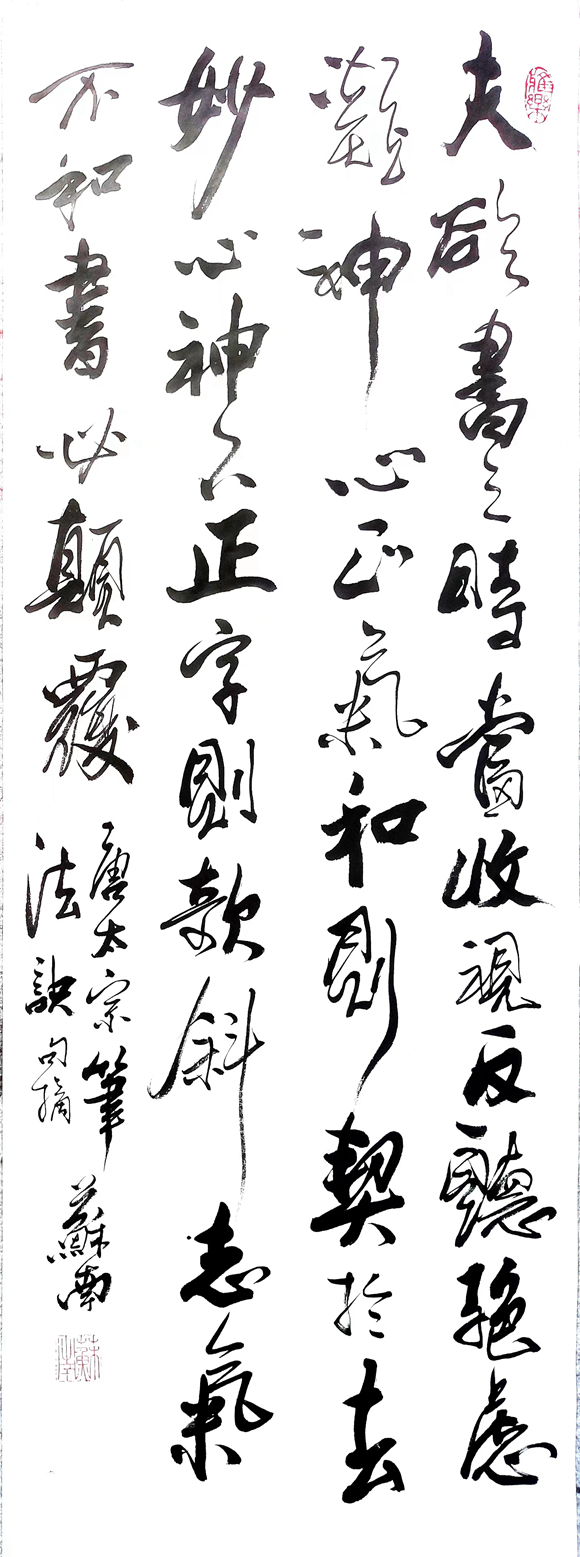 雅樂
夫欲書之時當收視反聽絕慮
凝神心正氣和則契於玄
妙心神不正字則欹斜志氣
不和書必顛覆
唐太宗筆
法訣句摘
蘇南